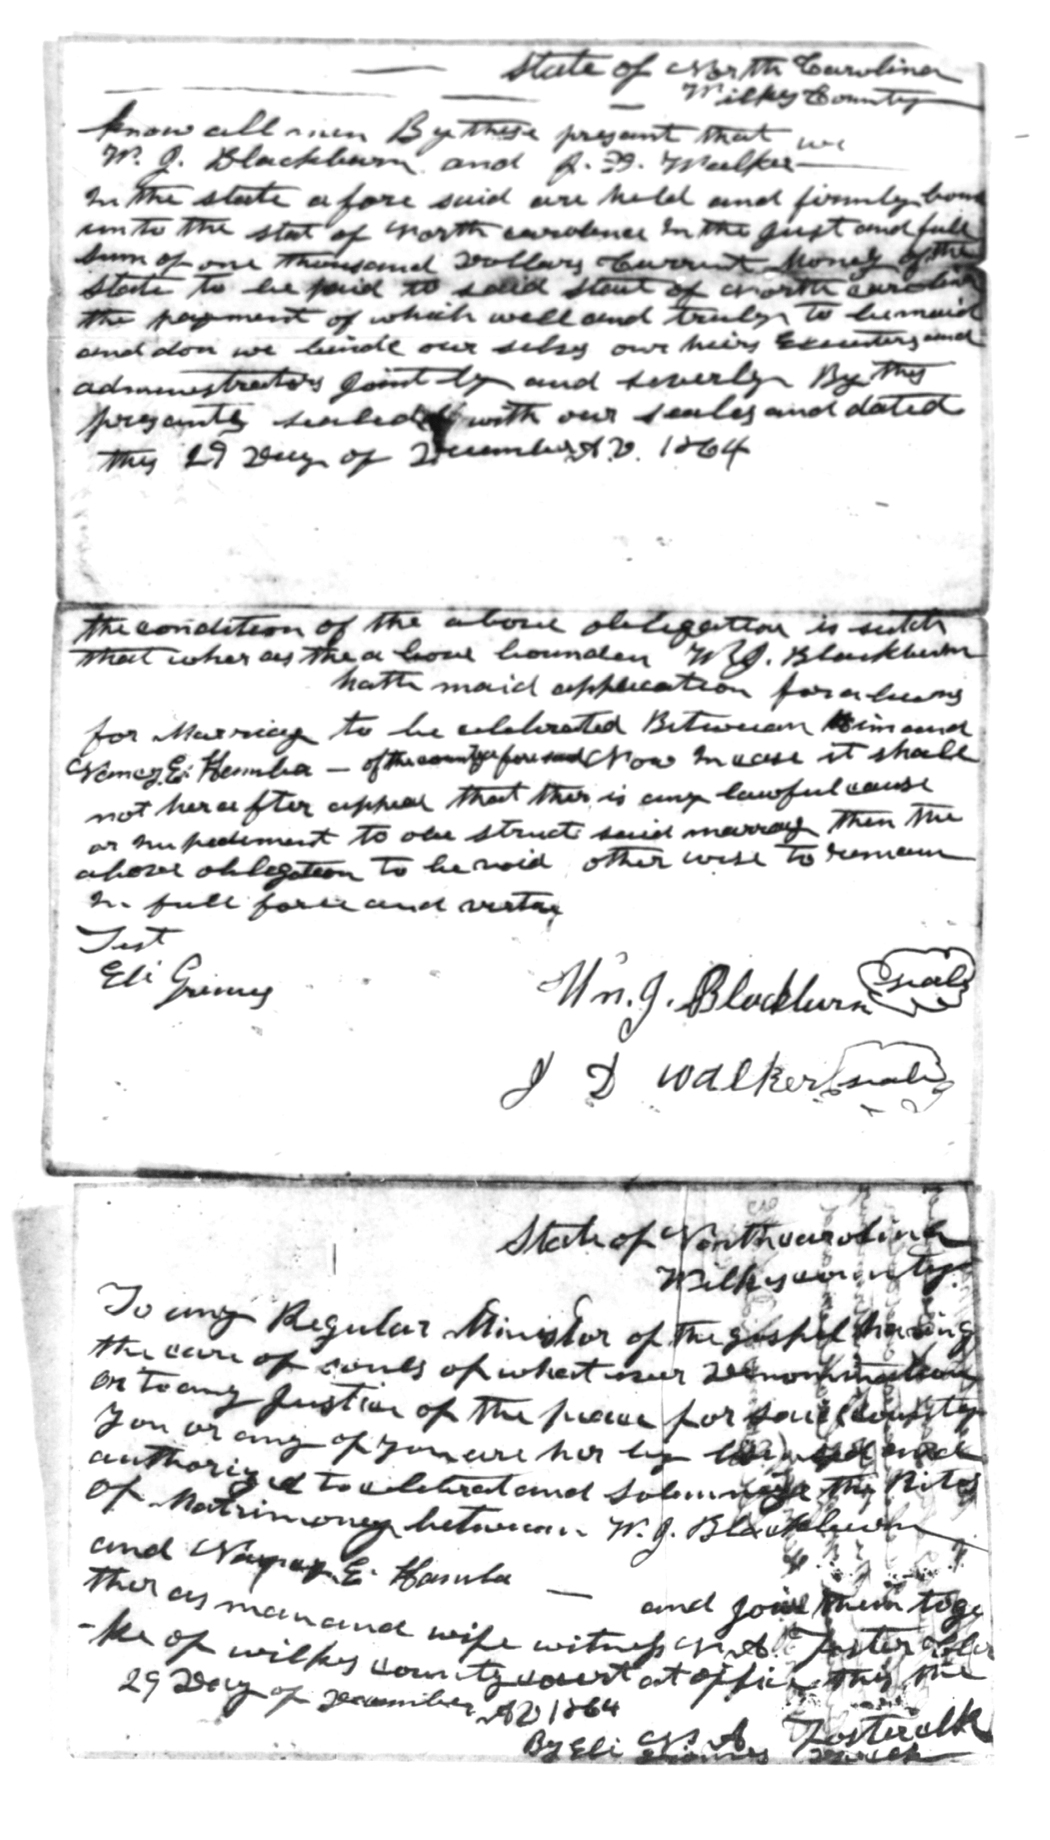 State of North Carolina
Wilkes County
Know all men By these present that we
W. J. Blackburn and J. D. Walker
In the state afore said are held and firmly boun
unto the stat of North carolina In the just and full
Sum of one thousand Dollars Current Money of the
State to be paid to said stat of North carolina
the payment of which well and truly to be maid
and don we binde our selvs our heirs Executers and
administrators Jointly and severly By this
presants sealed with our seales and dated
this 29 Day of December AD. 1864
the condition of the above obligation is sutch
that wher as the a bove bounden W J. Blackburn
hath maid application for a
for Marriag to be celebrated Between him and
Nancy E. Hamba — of the county afore said Now In case it shall
not here after appear that ther is any lawful cause
or Impediment to obe struct said marrag then the
above obligation to be void other wise to remain
In full force and vertu
Test
Eli Grimes
Wm. J. Blackburn seal
J D Walker seal
State of North carolina
Wilkes county
To any Regular Minister of the gospel having
the care of souls of what ever Denomination
or to any Justice of the peace for said County
You or any of you are her by and
authorized to celebrat and solemnize the Rites
of Matrimony between W. J. Blackburn
and Nancy E. Hamba — and join them toge
ther as man and wife witness N. A. Foster Cler
-ke of wilkes county court at office this the
29 Day of December AD 1864
N A Foster clk
By Eli Grimes